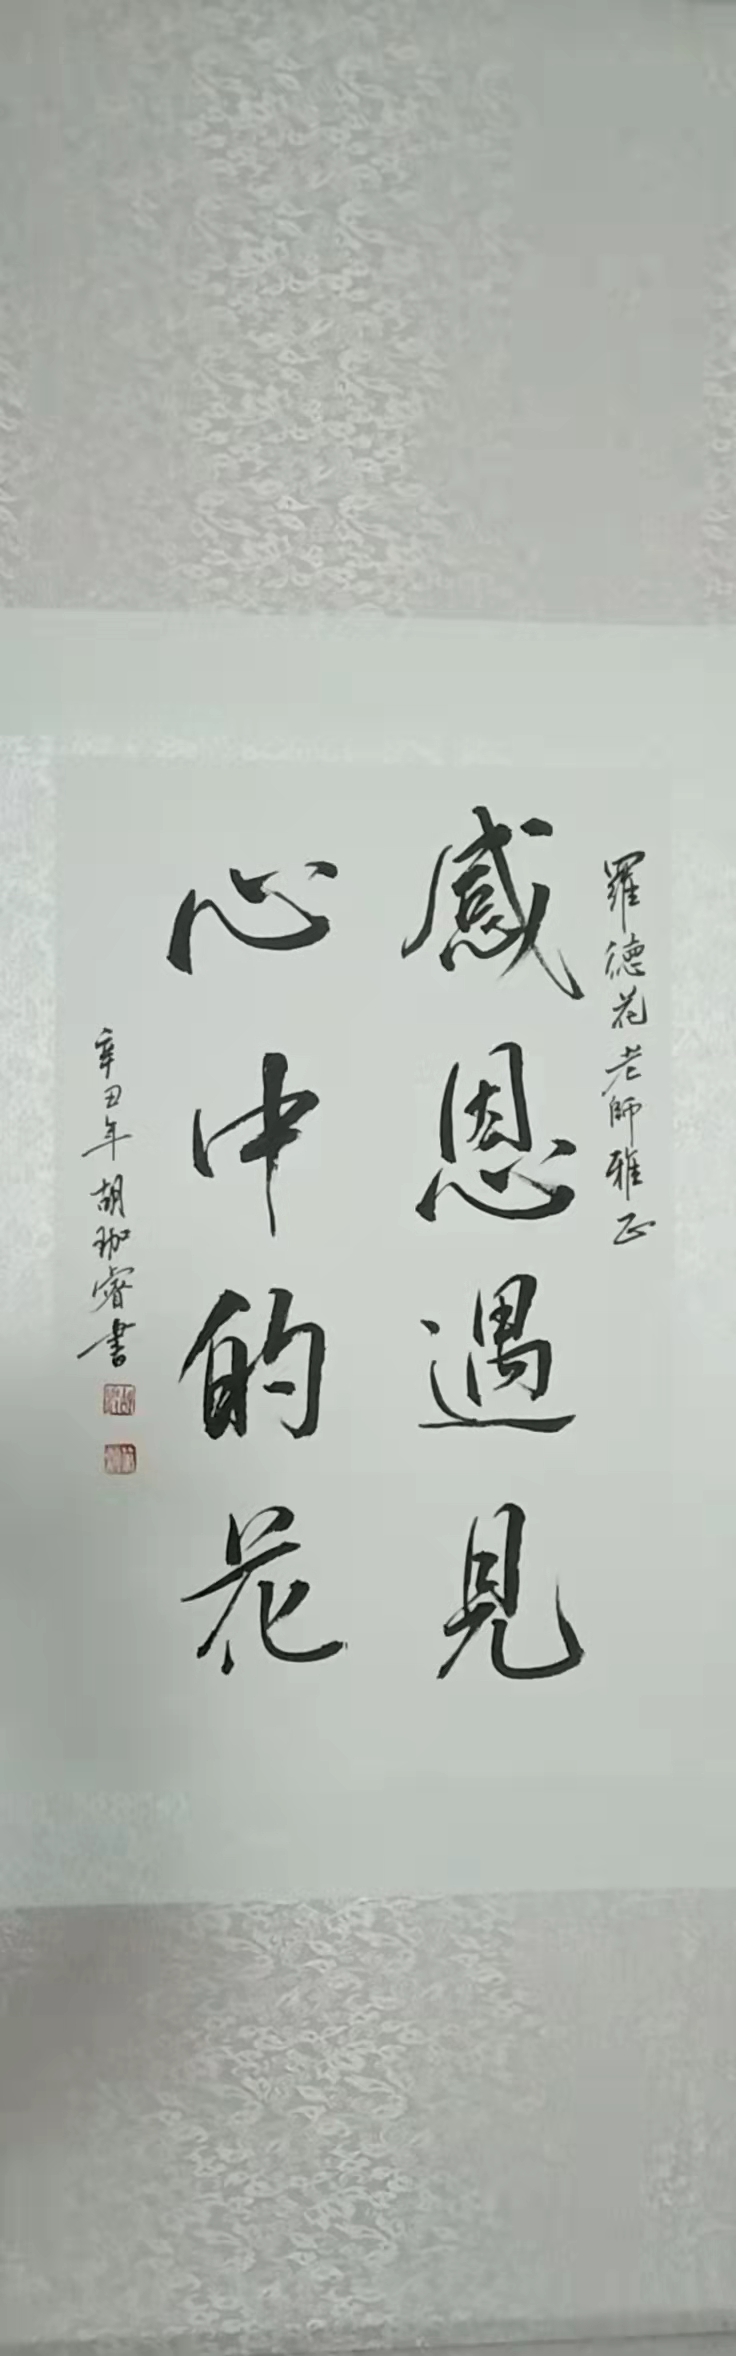 羅德花老師雅正
感恩遇見
心中的花
辛丑年胡珈睿書